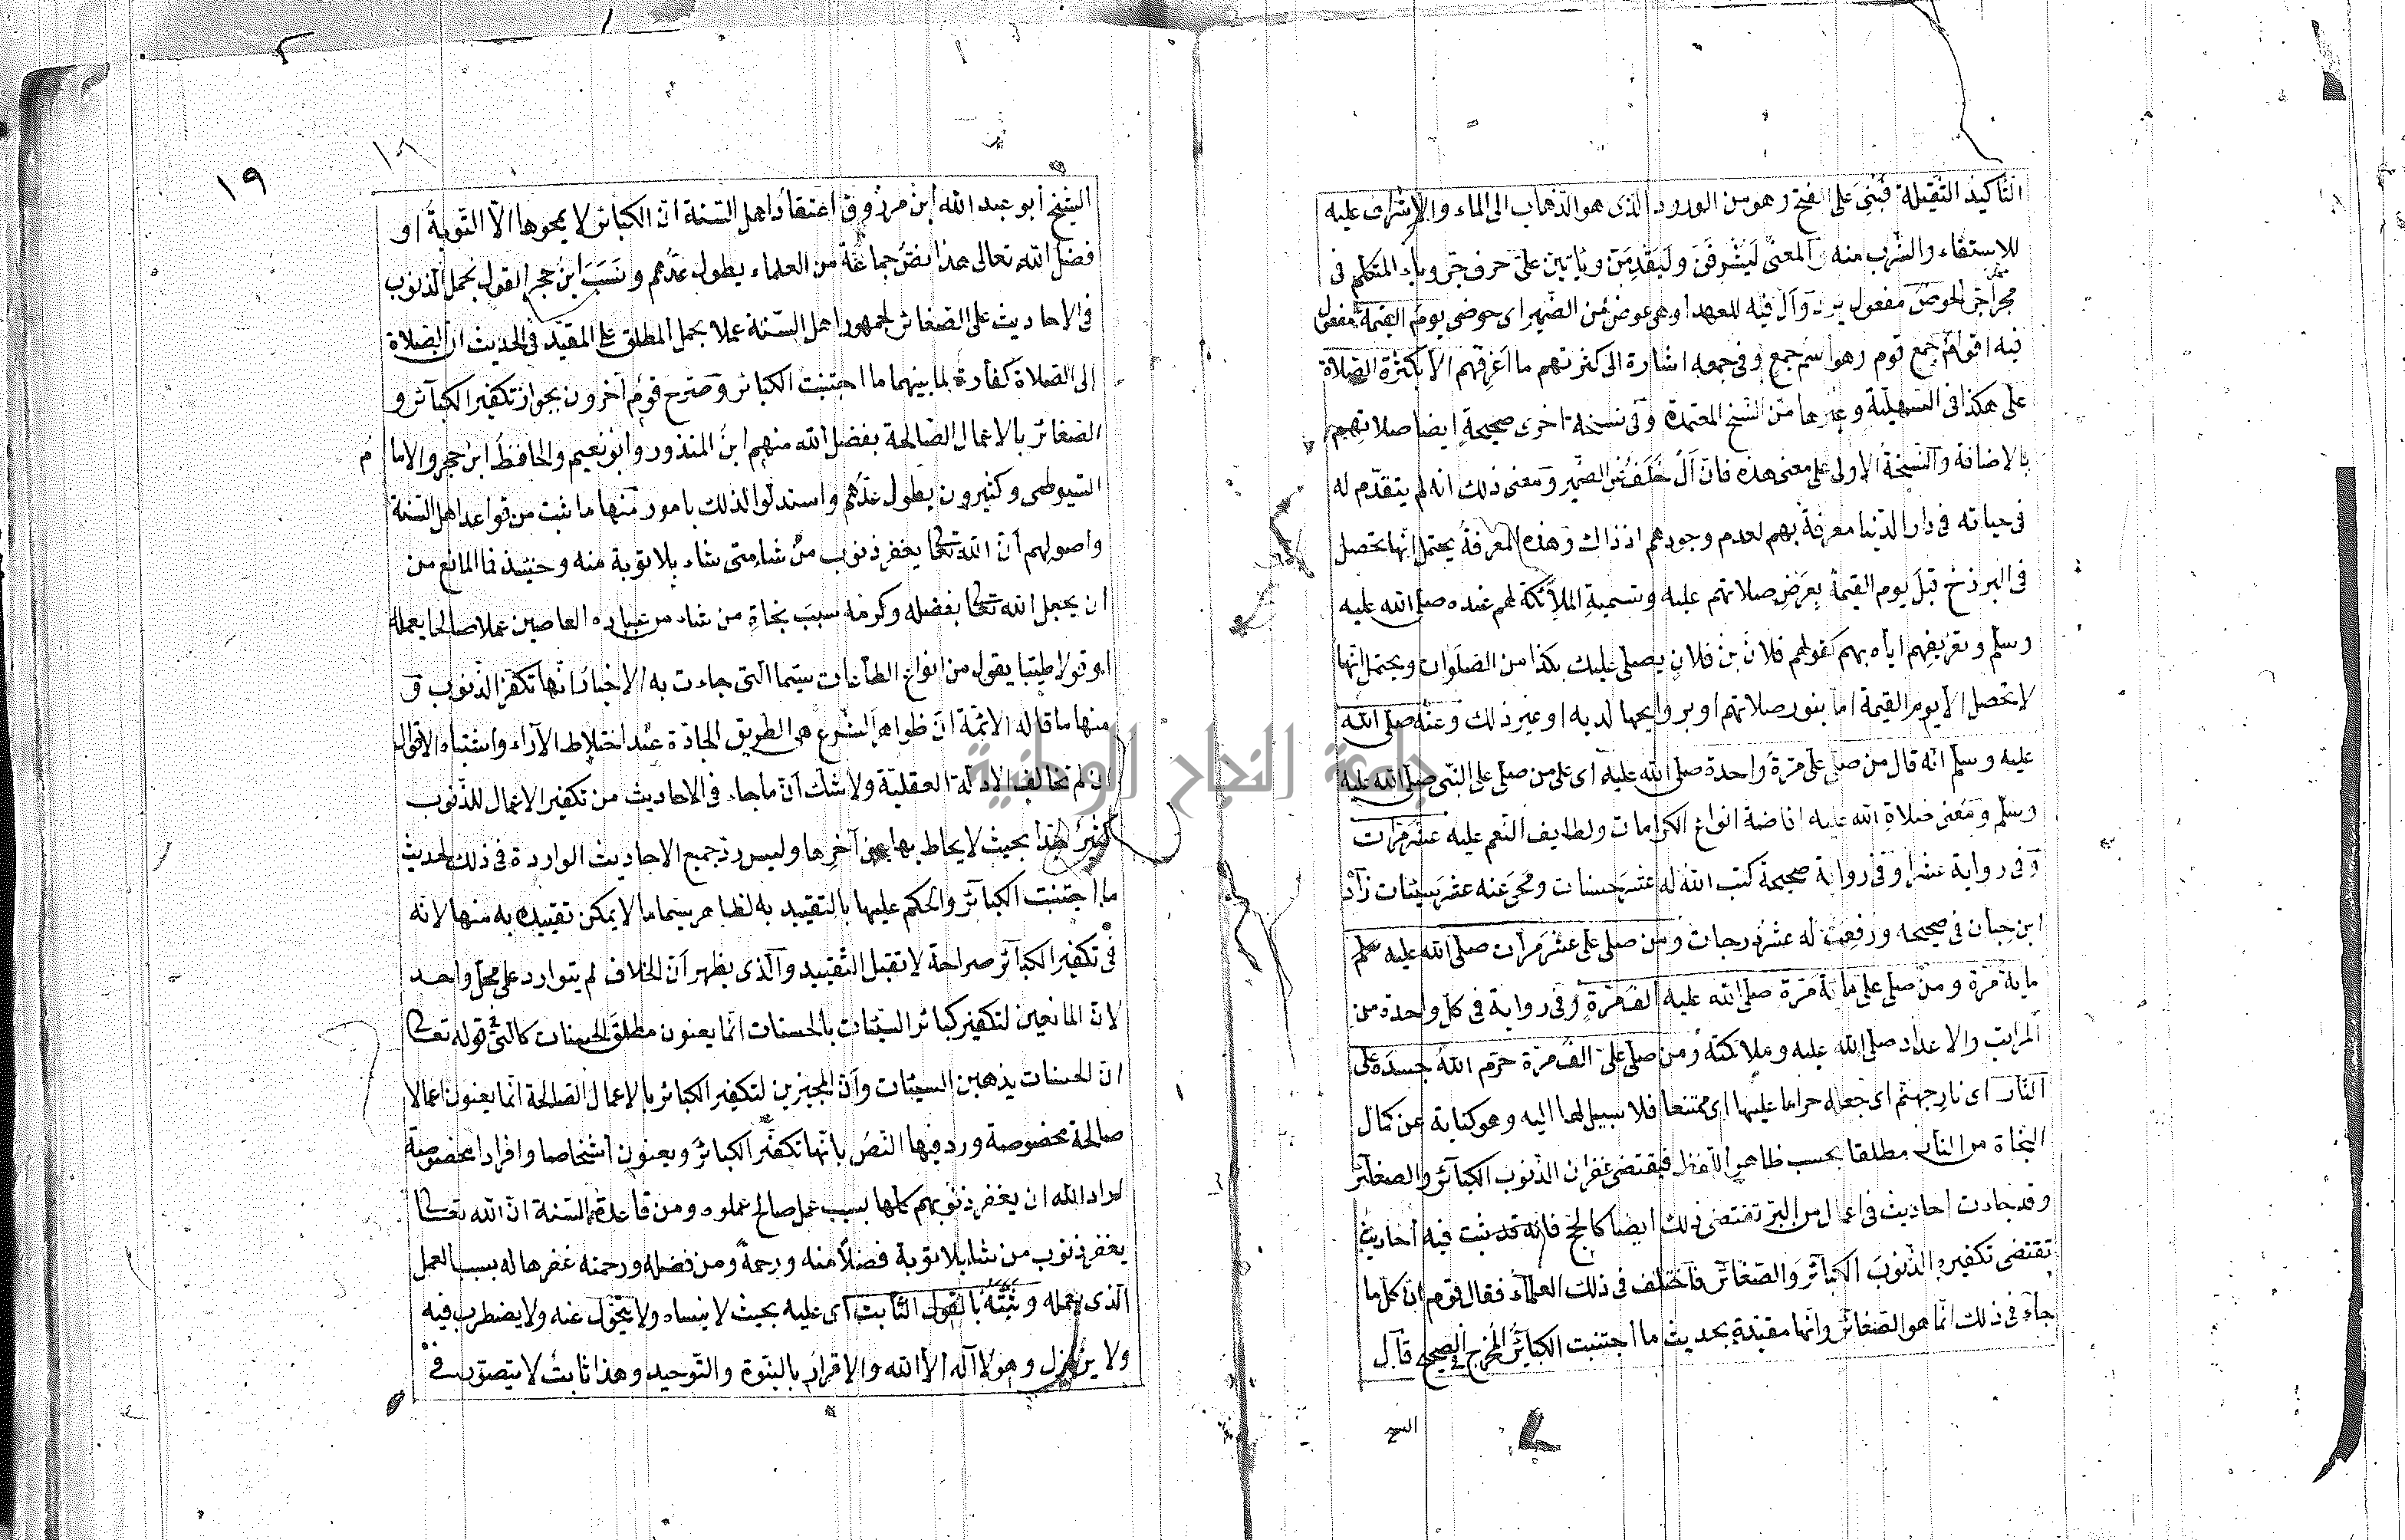 التأكيد الثقيلة فبني على الفتح وهو من الورود الذي هو الذهاب الى الماء والإشراف عليه
للاستقاء والشرب منه والمعنى ليشرفن وليقدمن ويأتين علي حرف جر وياء المتكلم في
مجرا جر الحوض مفعول يرد وأل فيه للعهد او هي عوض من الضمير اى حوضي يوم القيمة مفعول
فيه اقوام جمع قوم وهو اسم جمع وفي جمعه اشارة الى كثرتهم ما اعرفهم الا بكثرة الصلاة
علي هكذا في السهلية وغيرها من النسخ المعتمدة وفي نسخة اخرى صحيحة ايضا صلاتهم
بالاضافة والنسخة الاولى على معنى هذه فان أل خلف عن الضمير ومعنى ذلك انه لم يتقدم له
في حياته في دار الدنيا معرفة بهم لعدم وجودهم اذ ذاك وهذه المعرفة يحتمل انها تحصل
في البرزخ قبل يوم القيمة بعرض صلاتهم عليه وتسمية الملائكة لهم عنده صلى الله عليه
وسلم وتعريفهم اياه بهم كقولهم فلان بن فلان يصلي عليك بكذا من الصلوات ويحتمل انها
لا تحصل الا يوم القيمة اما بنور صلاتهم او بروايحها لديه او غير ذلك وعنه صلى الله
عليه وسلم انه قال من صلى علي مرة واحدة صلى الله عليه اى على من صلى على النبي صلى الله عليه
وسلم ومعنى صلاة الله عليه افاضة انواع الكرامات ولطايف النعم عليه عشر مرات
وفي رواية عشرا وفي رواية صحيحة كتب الله له عشر حسنات ومحى عنه عشر سيئات زاد
ابن حبان في صحيحه ورفعت له عشر درجات ومن صلى علي عشر مرات صلى الله عليه
ماية مرة ومن صلى علي ماية مرة صلى الله عليه الف مرة وفي رواية في كل واحدة من
المراتب والاعداد صلى الله عليه وملائكته ومن صلى علي الف مرة حرم الله جسده على
النار اى نار جهنم اى جعله حراما عليها اى ممتنعا فلا سبيل لها اليه وهو كناية عن كمال
النجاة من النار مطلقا بحسب ظاهر اللفظ فيقتضي غفران الذنوب الكبائر والصغائر
وقد جاءت احاديث في اعمال من البر تقتضي ذلك ايضا كالحج فانه قد ثبت فيه احاديث
تقتضي تكفيره الذنوب الكبائر والصغائر فاختلف في ذلك العلماء فقال قوم ان كل ما
جاء في ذلك انما هو الصغائر وانها مقيدة بحديث ما اجتنبت الكبائر المخرج في الصحيح قال
١٩
١٨
الشيخ ابو عبد الله ابن مرزوق اعتقاد اهل السنة ان الكبائر لا يمحوها الا التوبة او
فضل الله تعالى هذا نص جماعة من العلماء يطول عدهم ونسب ابن حجر القول بحمل الذنوب
في الاحاديث على الصغائر لجمهور اهل السنة عملا بحمل المطلق على المقيد في الحديث ان الصلاة
الى الصلاة كفارة لما بينهما ما اجتنبت الكبائر وصرح قوم آخرون بجواز تكفير الكبائر و
الصغائر بالاعمال الصالحة بفضل الله منهم ابن المنذور وابو نعيم والحافظ ابن حجر والاما م
السيوطي وكثيرون يطول عدهم واستدلوا لذلك بامور منها ما ثبت من قواعد اهل السنة
واصولهم ان الله تعالى يغفر ذنوب من شاء متى شاء بلا توبة منه وحينئذ فما المانع من
ان يجعل الله تعالى بفضله وكرمه سبب نجاة من شاء من عباده العاصين عملا صالحا يعمله
او قولا طيبا يقول من انواع الطاعات سيما التي جاءت به الاخبار انها تكفر الذنوب و
منها ما قاله الائمة ان ظواهر الشرع هي الطريق الجادة عند اختلاط الآراء واشتباه الاقوال
ان لم تخالف الادلة العقلية ولا شك ان ما جاء في الاحاديث من تكفير الاعمال للذنوب
كثير جدا بحيث لا يحاط بها عن آخرها وليس رد جميع الاحاديث الواردة في ذلك لحديث
ما اجتنبت الكبائر والحكم عليها بالتقييد به لظاهر سيما ما لا يمكن تقييده به منها لانه
في تكفير الكبائر صراحة لا تقبل التقييد والذي يظهر ان الخلاف لم يتوارد على محل واحد
لان المانعين لتكفير كبائر السيئات بالحسنات انما يعنون مطلق الحسنات كالتي في قوله تعالى
ان الحسنات يذهبن السيئات وان المجيزين لتكفير الكبائر بالاعمال الصالحة انما يعنون اعمالا
صالحة مخصوصة ورد فيها النص بانها تكفر الكبائر ويعنون اشخاصا وافرادا مخصوصة
اراد الله ان يغفر ذنوبهم كلها بسبب عمل صالح عملوه ومن قاعدة السنة ان الله تعالى
يغفر ذنوب من شاء بلا توبة فضلا منه ورحمة ومن فضله ورحمته غفرها له بسبب العمل
الذي يعمله وثبته بالقول الثابت اى عليه بحيث لا ينساه ولا يتحول عنه ولا يضطرب فيه
ولا يتزلزل وهو لا اله الا الله والاقرار بالنبوة والتوحيد وهذا ثابت لا يتصور في
جامعة النجاح الوطنية